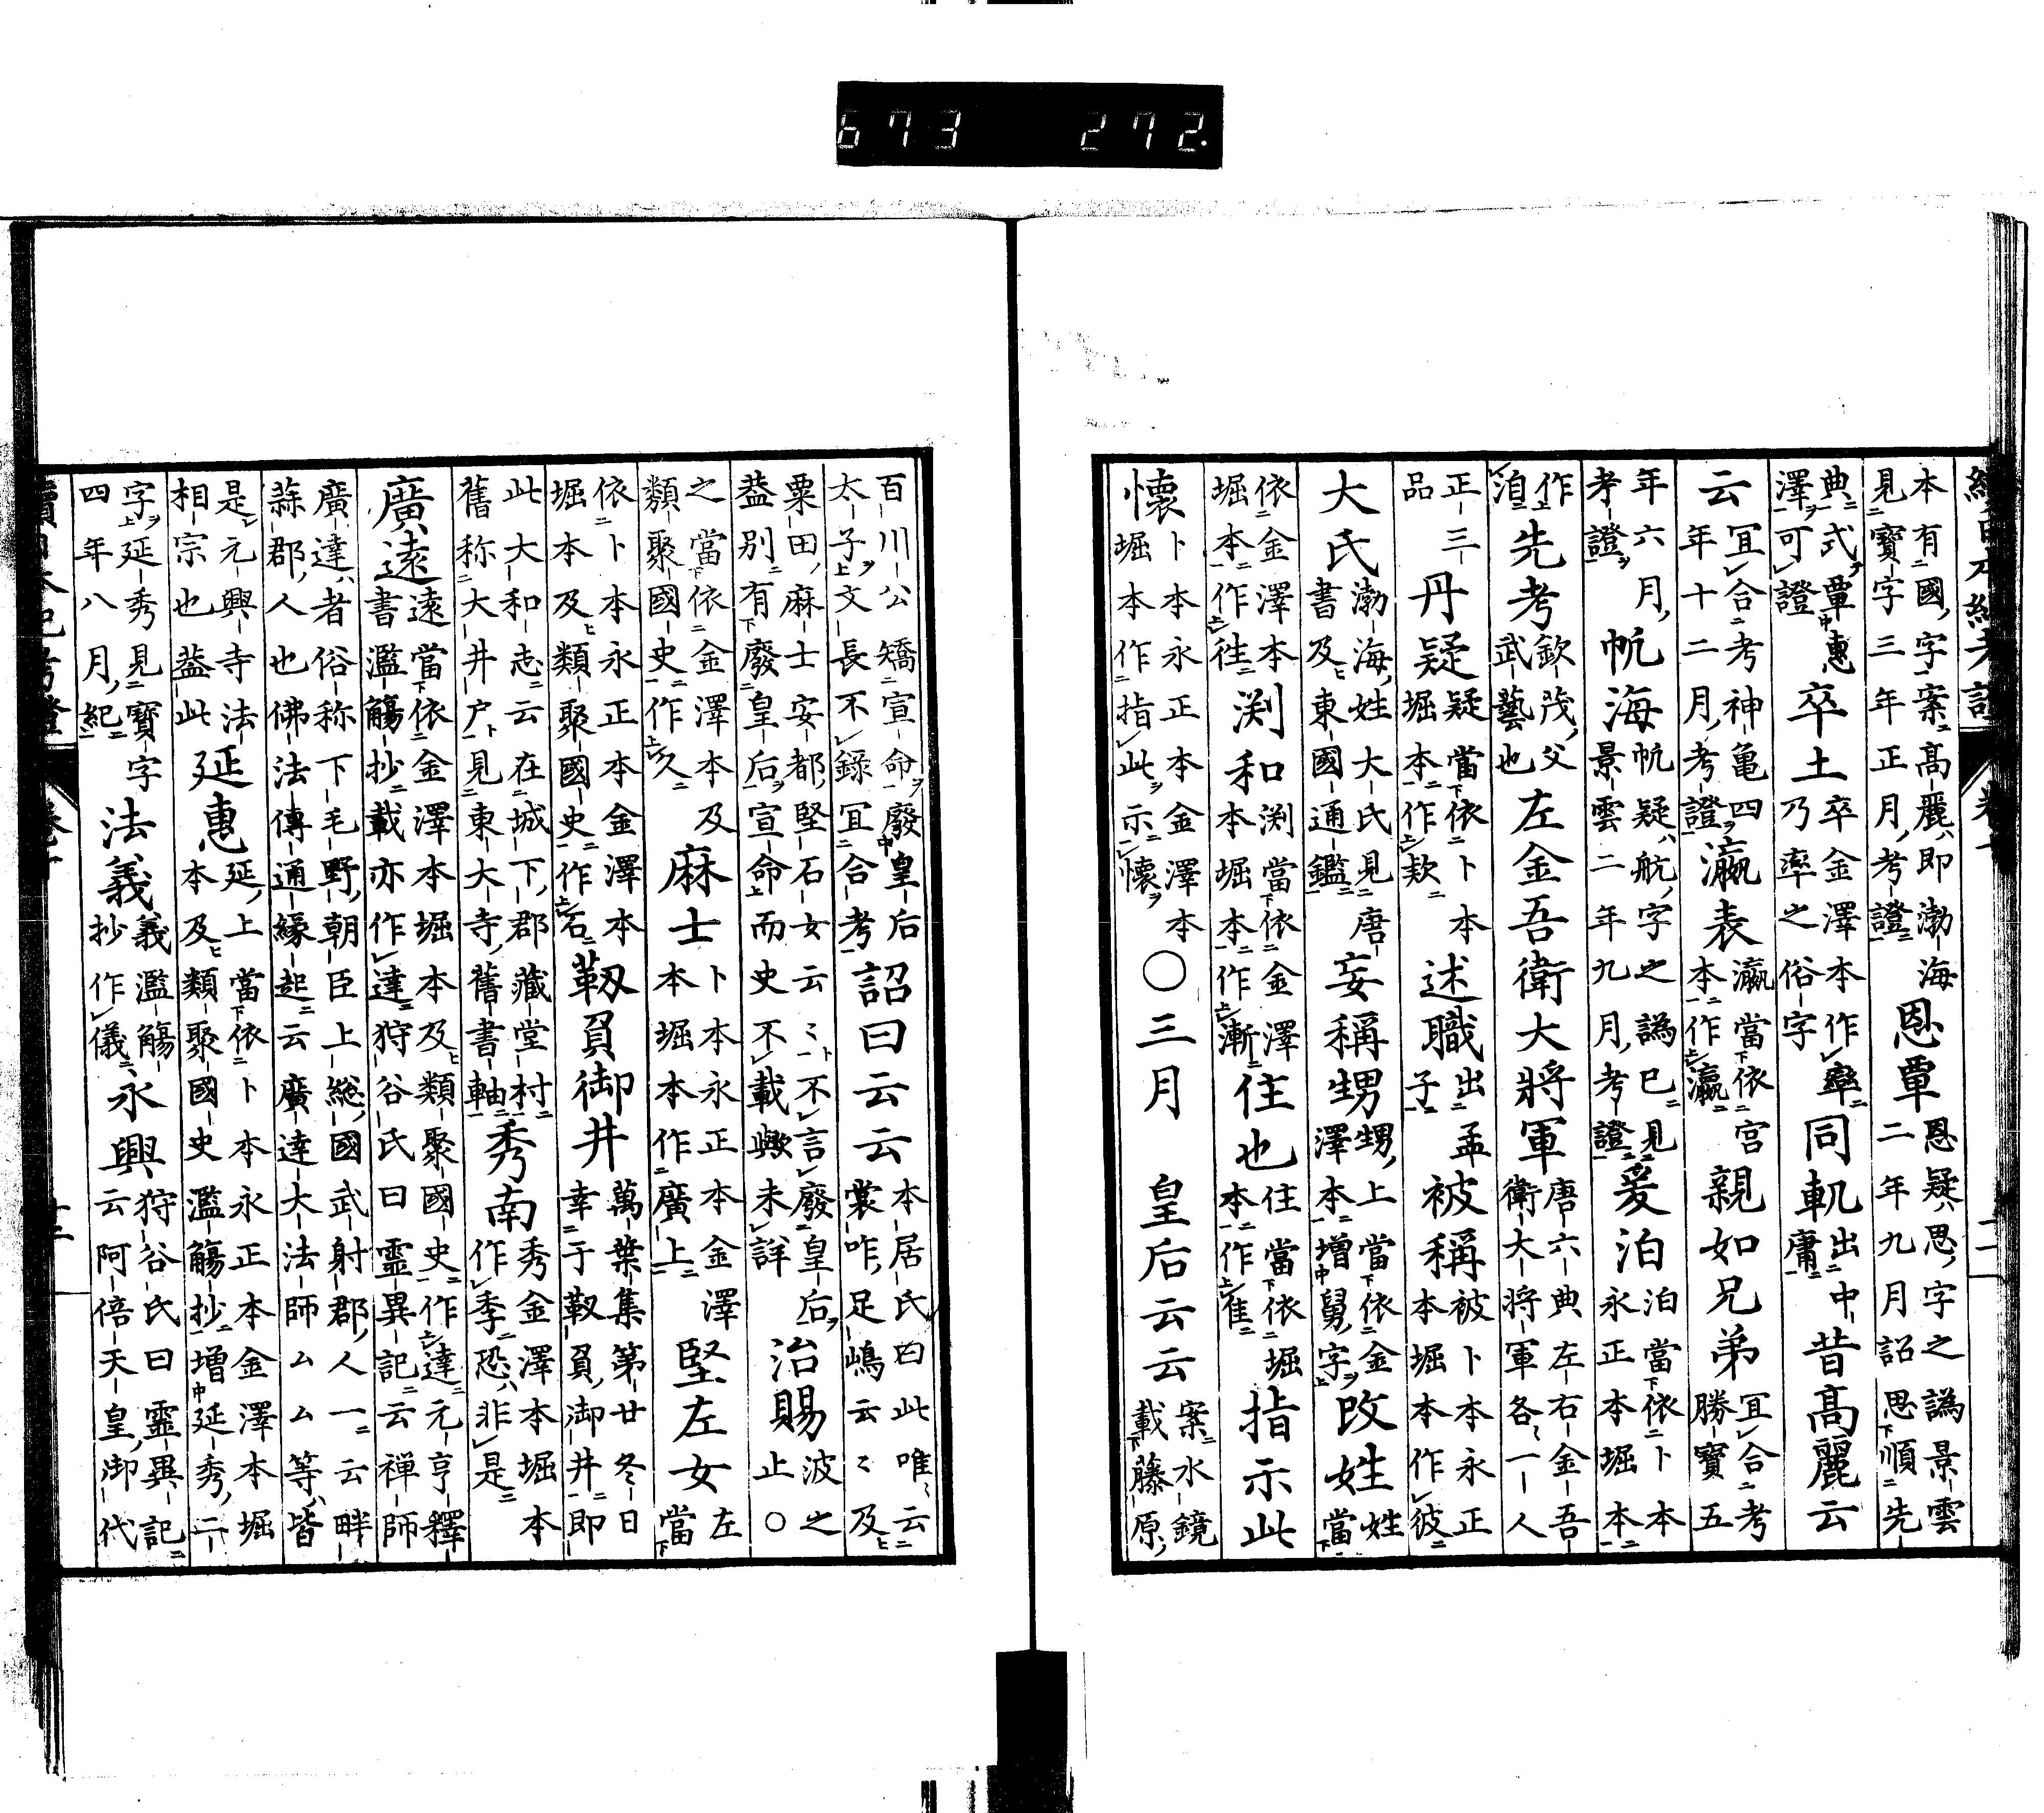 本有國字案高麗即渤海見寶字三年正月考證恩覃恩疑思字之譌景雲二年九月詔思順先
典式覃惠澤可證卒土卒金澤本作率乃率之俗字同軌出中庸昔高麗云
云宜合考神亀四年十二月考證瀛表瀛當依宮本作瀛親如兄弟宜合考勝寶五
年六月考證帆海帆疑航字之譌已見景雲二年九月考證爰泊泊當依卜本永正本堀本
作洎先考欽茂父武藝也左金吾衛大將軍唐六典左右金吾衛大將軍各一人
正三品丹疑疑當依卜本堀本作款述職出孟子被稱被卜本永正本堀本作彼
大氏渤海姓大氏見唐書及東國通鑑妄稱甥甥上當依金澤本增舅字改姓姓當
依金澤本堀本作往渕和渕當依金澤本堀本作漸住也住當依堀本作隹指示此
懷卜本永正本金澤本堀本作指此示懷〇三月 皇后云云案水鏡載藤原
百川公矯宣命廢皇后太子文長不錄宜合考詔曰云云本居氏曰此唯云裳咋足嶋云〻及
粟田麻士安都堅石女云〻不言廢皇后蓋別有廢皇后宣命而史不載歟未詳治賜波之止〇
之當依金澤本及類聚國史作久麻士卜本永正本金澤本堀本作廣上堅左女左當
依卜本永正本金澤本堀本及類聚國史作石靱負御井萬葉集第廿冬日幸于靱負御井即
此大和志云在城下郡藏堂村舊称大井戸見東大寺舊書軸秀南秀金澤本堀本作季恐非是
廣遠遠當依金澤本堀本及類聚國史作達元亨釋書濫觴抄載亦作達狩谷氏曰靈異記云禅師
廣達者俗称下毛野朝臣上総國武射郡人一云畔蒜郡人也佛法傳通緣起云廣達大法師ムム等皆
是元興寺法相宗也蓋此延惠延上當依卜本永正本金澤本堀本及類聚國史濫觴抄增延秀二
字延秀見寶字四年八月紀法義義濫觴抄作儀永興狩谷氏曰靈異記云阿倍天皇御代
673 272.